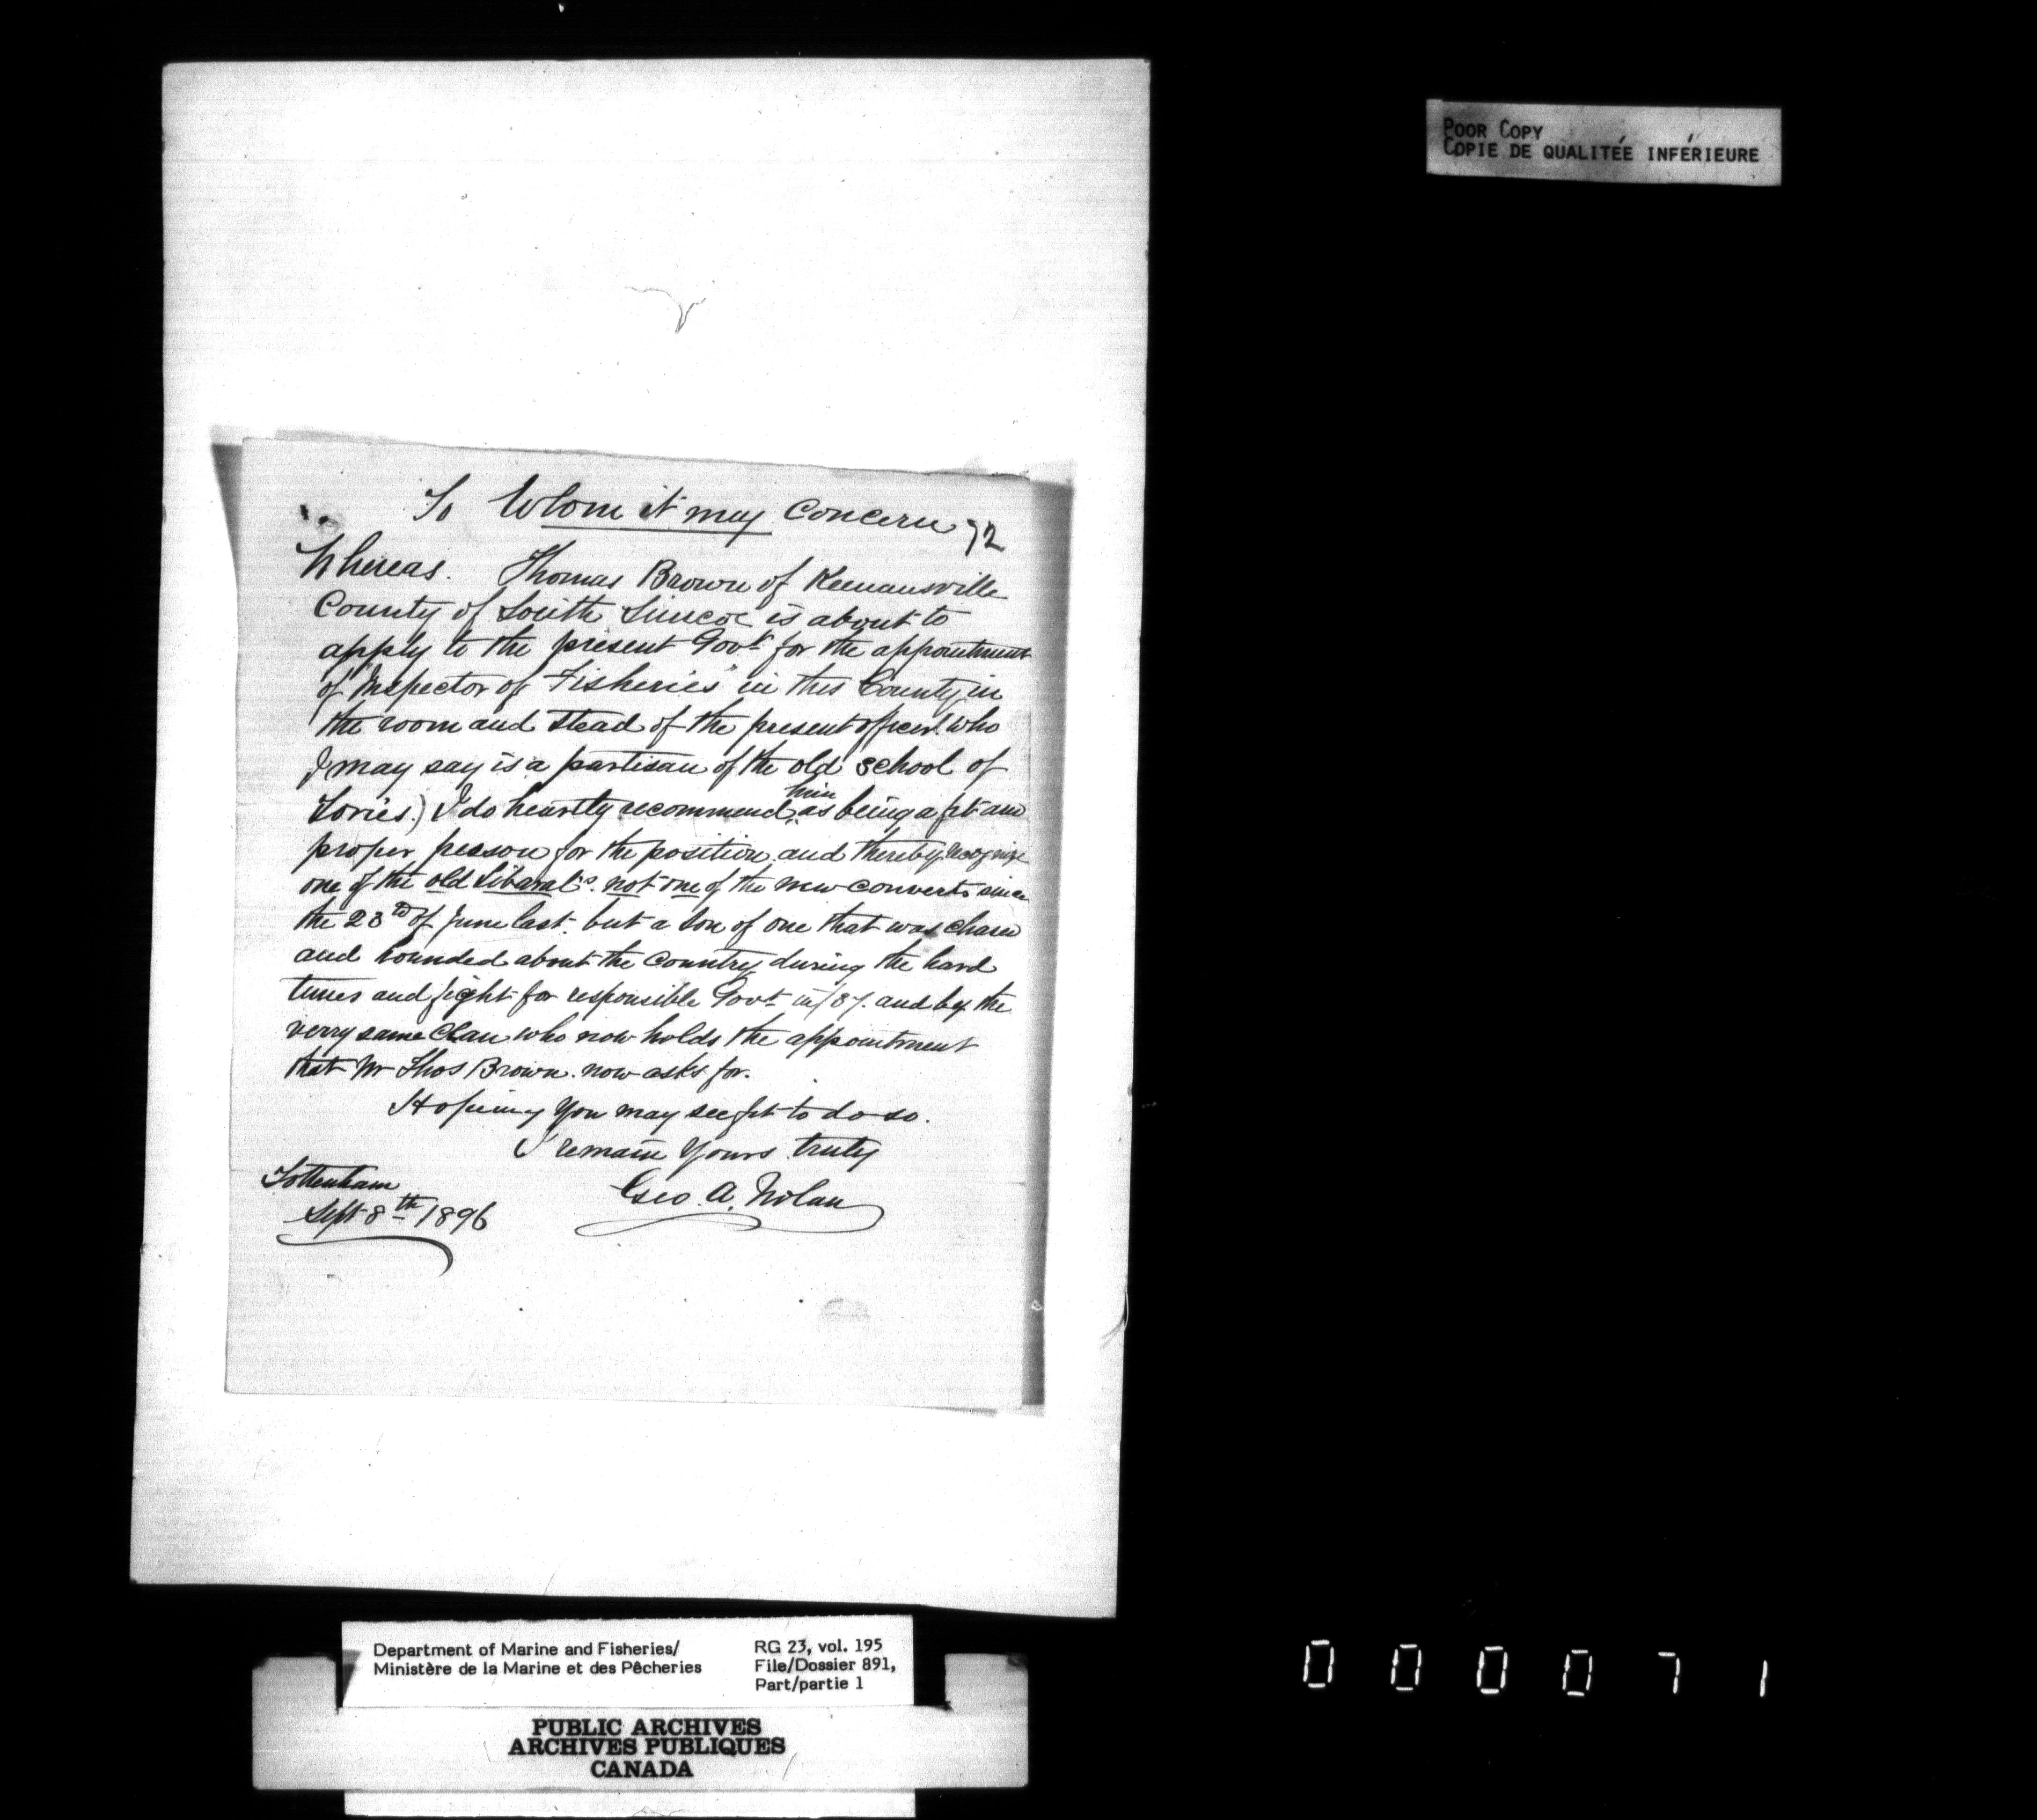 POOR COPY
COPIE DE QUALITÉE INFÉRIEURE
To Whom it may Concern
72
Whereas. Thomas Brown of Keenansville
County of South Simcoe is about to
apply to the present Govt for the appointment
of "Inspector of Fisheries" in this County in
the room and stead of the present officer. who
I may say is a partisan of the old school of
Tories.) I do heartly recommend him as being a fit and
proper person for the position and thereby recognize
one of the old Libaral's. not one of the new converts since
the 23rd of June last. but a son of one that was chased
and hounded about the Country during the hard
times and fight for responsible Govt in /37. and by the
verry same Clan who now holds the appointment
that Mr Thos Brown. now asks for.
Hoping you may see fit to do so.
I remain Yours truly
Geo. A. Nolan
Tottenham
Sept 8th 1896
Department of Marine and Fisheries/
Ministère de la Marine et des Pêcheries
RG 23, vol. 195
File/Dossier 891,
Part/partie 1
PUBLIC ARCHIVES
ARCHIVES PUBLIQUES
CANADA
000071